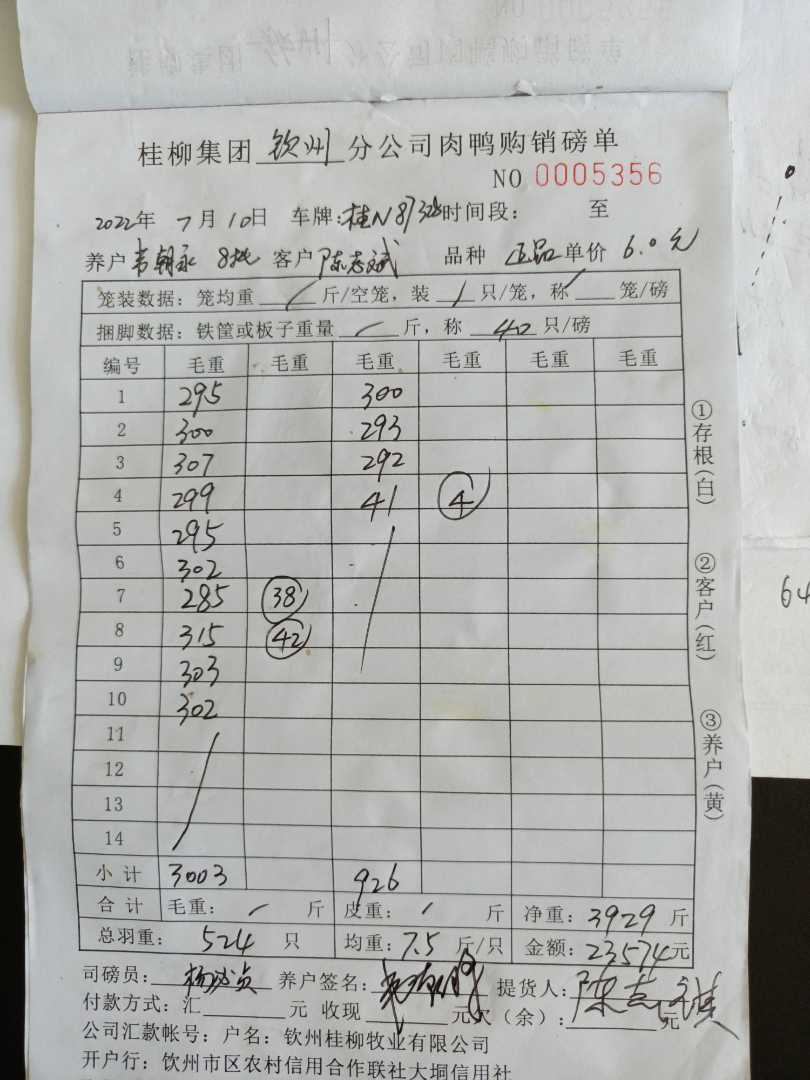 桂柳集团 钦州 分公司肉鸭购销磅单
NO 0005356
2022年 7月10日 车牌:桂N 时间段: 至
养户 韦朝永 8批 客户 陈志斌 品种 正品 单价 6.0元
笼装数据: 笼均重 / 斤/空笼, 装 / 只/笼, 称 / 笼/磅
捆脚数据: 铁筐或板子重量 / 斤, 称 40 只/磅
编号 毛重 毛重 毛重 毛重 毛重 毛重
1 295 300
2 300 293
3 307 292
4 299 41 4
5 295
6 302
7 285 38
8 315 42
9 303
10 302
11
12
13
14
小计 3003 926
合计 毛重: / 斤 皮重: / 斤 净重: 3929 斤
总羽重: 524 只 均重: 7.5 斤/只 金额: 23574元
司磅员: 养户签名: 提货人:
付款方式: 汇 元 收现 元欠(余): 元
公司汇款帐号: 户名: 钦州桂柳牧业有限公司
开户行: 钦州市区农村信用合作联社大垌信用社
①存根(白)
②客户(红)
③养户(黄)
64